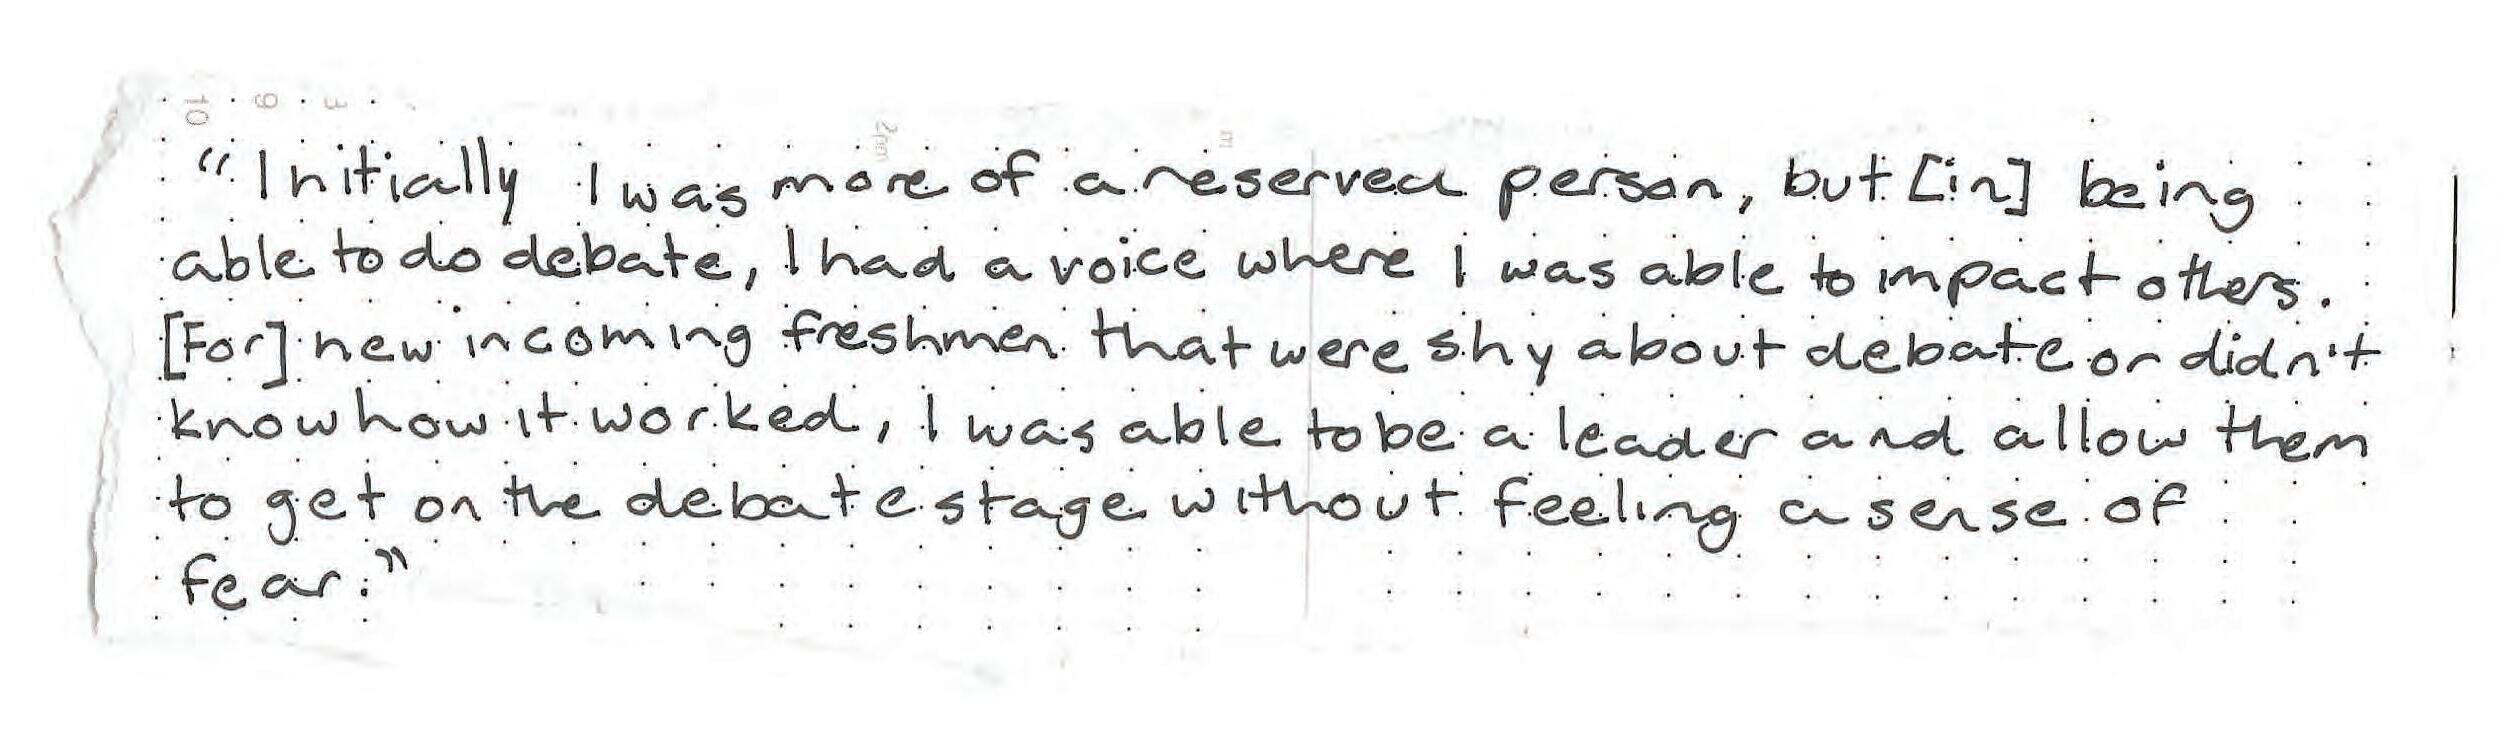 “Initially I was more of a reserved person, but [in] being
able to do debate, I had a voice where I was able to impact others.
[For] new incoming freshmen that were shy about debate or didn't
know how it worked, I was able to be a leader and allow them
to get on the debate stage without feeling a sense of
fear.”